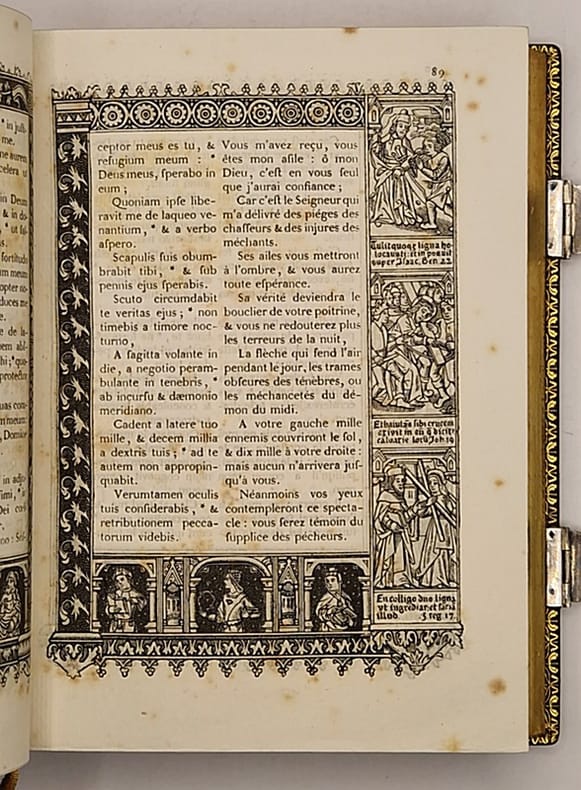 89
ceptor meus es tu, &
refugium meum : *
Deus meus, ſperabo in
eum ;
Quoniam ipſe libe-
ravit me de laqueo ve-
nantium, * & a verbo
aſpero.
Scapulis ſuis obum-
brabit tibi, * & ſub
pennis ejus ſperabis.
Scuto circumdabit
te veritas ejus ; * non
timebis a timore noc-
turno,
A ſagitta volante in
die, a negotio peram-
bulante in tenebris, *
ab incurſu & dæmonio
meridiano.
Cadent a latere tuo
mille, & decem millia
a dextris tuis ; * ad te
autem non appropin-
quabit.
Verumtamen oculis
tuis conſiderabis, * &
retributionem pecca-
torum videbis.
Vous m'avez reçu, vous
êtes mon aſile : ô mon
Dieu, c'eſt en vous ſeul
que j'aurai confiance ;
Car c'eſt le Seigneur qui
m'a délivré des piéges des
chaſſeurs & des injures des
méchants.
Ses ailes vous mettront
à l'ombre, & vous aurez
toute eſpérance.
Sa vérité deviendra le
bouclier de votre poitrine,
& vous ne redouterez plus
les terreurs de la nuit,
La flèche qui fend l'air
pendant le jour, les trames
obſcures des ténèbres, ou
les méchancetés du dé-
mon du midi.
A votre gauche mille
ennemis couvriront le ſol,
& dix mille à votre droite :
mais aucun n'arrivera juſ-
qu'à vous.
Néanmoins vos yeux
contempleront ce specta-
cle : vous ſerez témoin du
ſupplice des pécheurs.
Tulit quoqȝ ligna ho-
locauſti: et impoſuit
ſuper Iſaac. Gen 22
crucem
exivit in
calvarie locū Joh 19
En colligo duo ligna
vt ingrediar: et faciā
illud. 3 reg 17